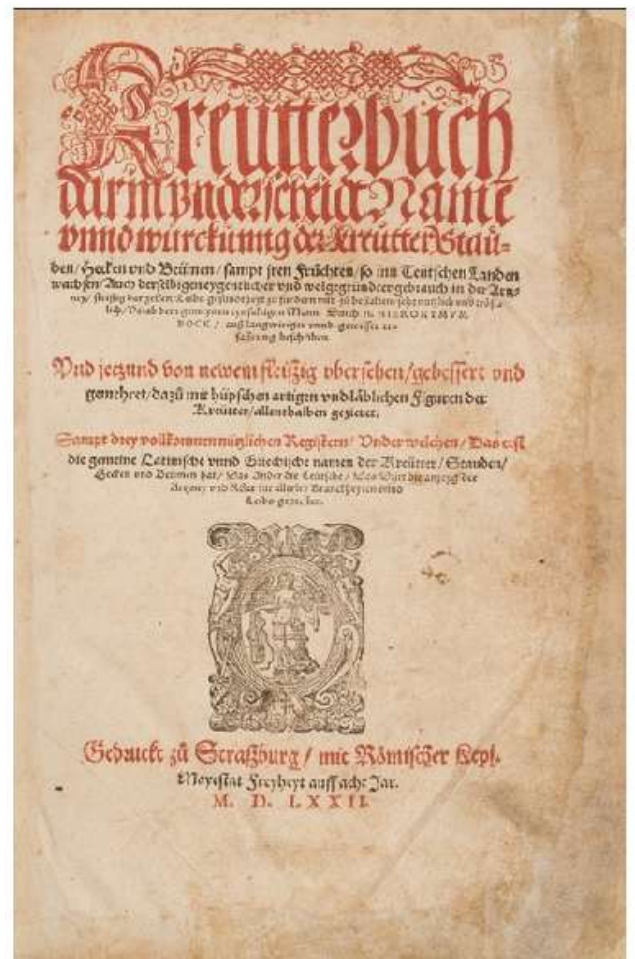 Kreutterbuch
darin̄ vnderscheidt Namē
vnnd würckung der Kreütter Stau-
den/ Hecken vnd Beümen/ sampt jren Früchten/ so inn Teutschen Landen
wachsen/ Auch derselbigen eygentlicher vnd wolgegründter gebrauch in der Artz-
ney/ fleissig dargeben/ Leibs gesundtheyt zů
Durch H. HIERONYMVM
BOCK/ auß langwiriger vnnd gewisser er-
farung beschriben.
Vnd jetzund von newem fleißig vbersehen/ gebessert vnd
gemehret/ dazů mit hüpschen artigen vnd läblichen Figuren der
Kreütter/ allenthalben gezieret.
Sampt drey vollkommen nützlichen Registern/ Vnder welchen/ Das erst
die gemeine Latinische vnnd Griechische namen der Kreütter/ Stauden/
Hecken vnd Beümen hat/ Das Ander die Teutsche/ Das Dritt die anzeyg der
Artzney vnd Rähte für allerley Kranckheyten vnnd
Leibs gebresten.
Getruckt zů Straßburg/ mit Römischer Keys.
Mayestat Freyheyt auff acht Jar.
M. D. LXXII.